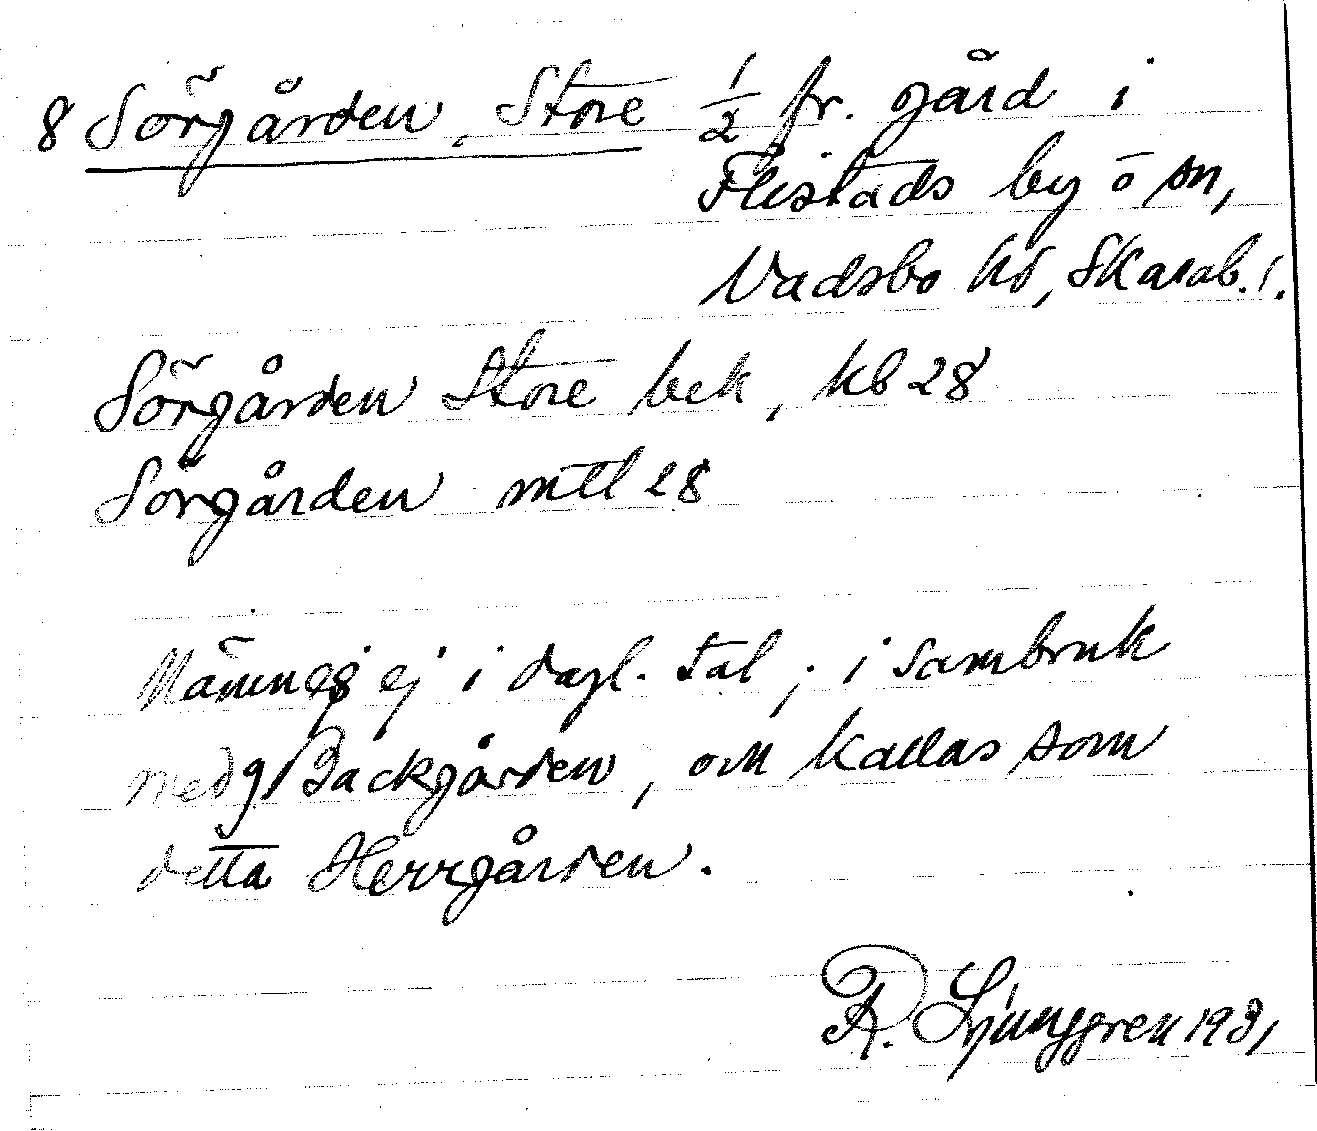 8 Sörgården, Store ½ fr. gård i
Flistads by o sn,
Vadsbo hd, Skarab. l.
Sörgården Store bek, kb 28
Sörgården mtl 28
Nämnes ej i dagl. tal; i sambruk
med Backgården, och kallas som
detta Herrgården.
R. Ljunggren 1931